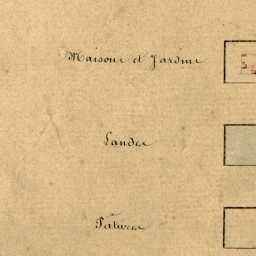 Maisons et Jardins
Landes
Patures